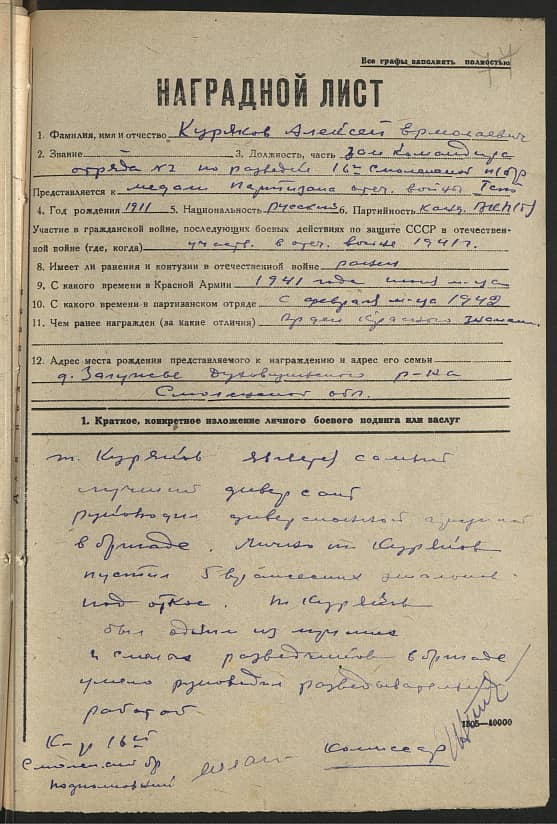 Все графы заполнять полностью
НАГРАДНОЙ ЛИСТ
1. Фамилия, имя и отчество Куряков Алексей Ермолаевич
2. Звание 3. Должность, часть Зам Командира
отряда №2 по разведке 16ой Смоленской п/бр
Представляется к медали Партизана отеч. войны I ст
4. Год рождения 1911 5. Национальность русский 6. Партийность канд. ВКП(б)
Участие в гражданской войне, последующих боевых действиях по защите СССР в отечествен-
ной войне (где, когда) участв. в отеч. войне 1941 г.
8. Имеет ли ранения и контузии в отечественной войне ранен
9. С какого времени в Красной Армии 1941 года июня м-ца
10. С какого времени в партизанском отряде с февраля м-ца 1942
11. Чем ранее награжден (за какие отличия) Орден Красного знамени
12. Адрес места рождения представляемого к награждению и адрес его семьи
д. Духовщинского р-на
Смоленской обл.
1. Краткое, конкретное изложение личного боевого подвига или заслуг
т. Куряков является самый
лучший диверсант
руководил диверсионной группой
в бригаде. Лично т. Куряков
пустил 5 вражеских эшелонов
под откос. т. Куряков
был одним из лучших
и смелых разведчиков в бригаде
умело руководил разведывательной
работой
1505—10000
К-р 16ой
Смоленской бр
Комиссар